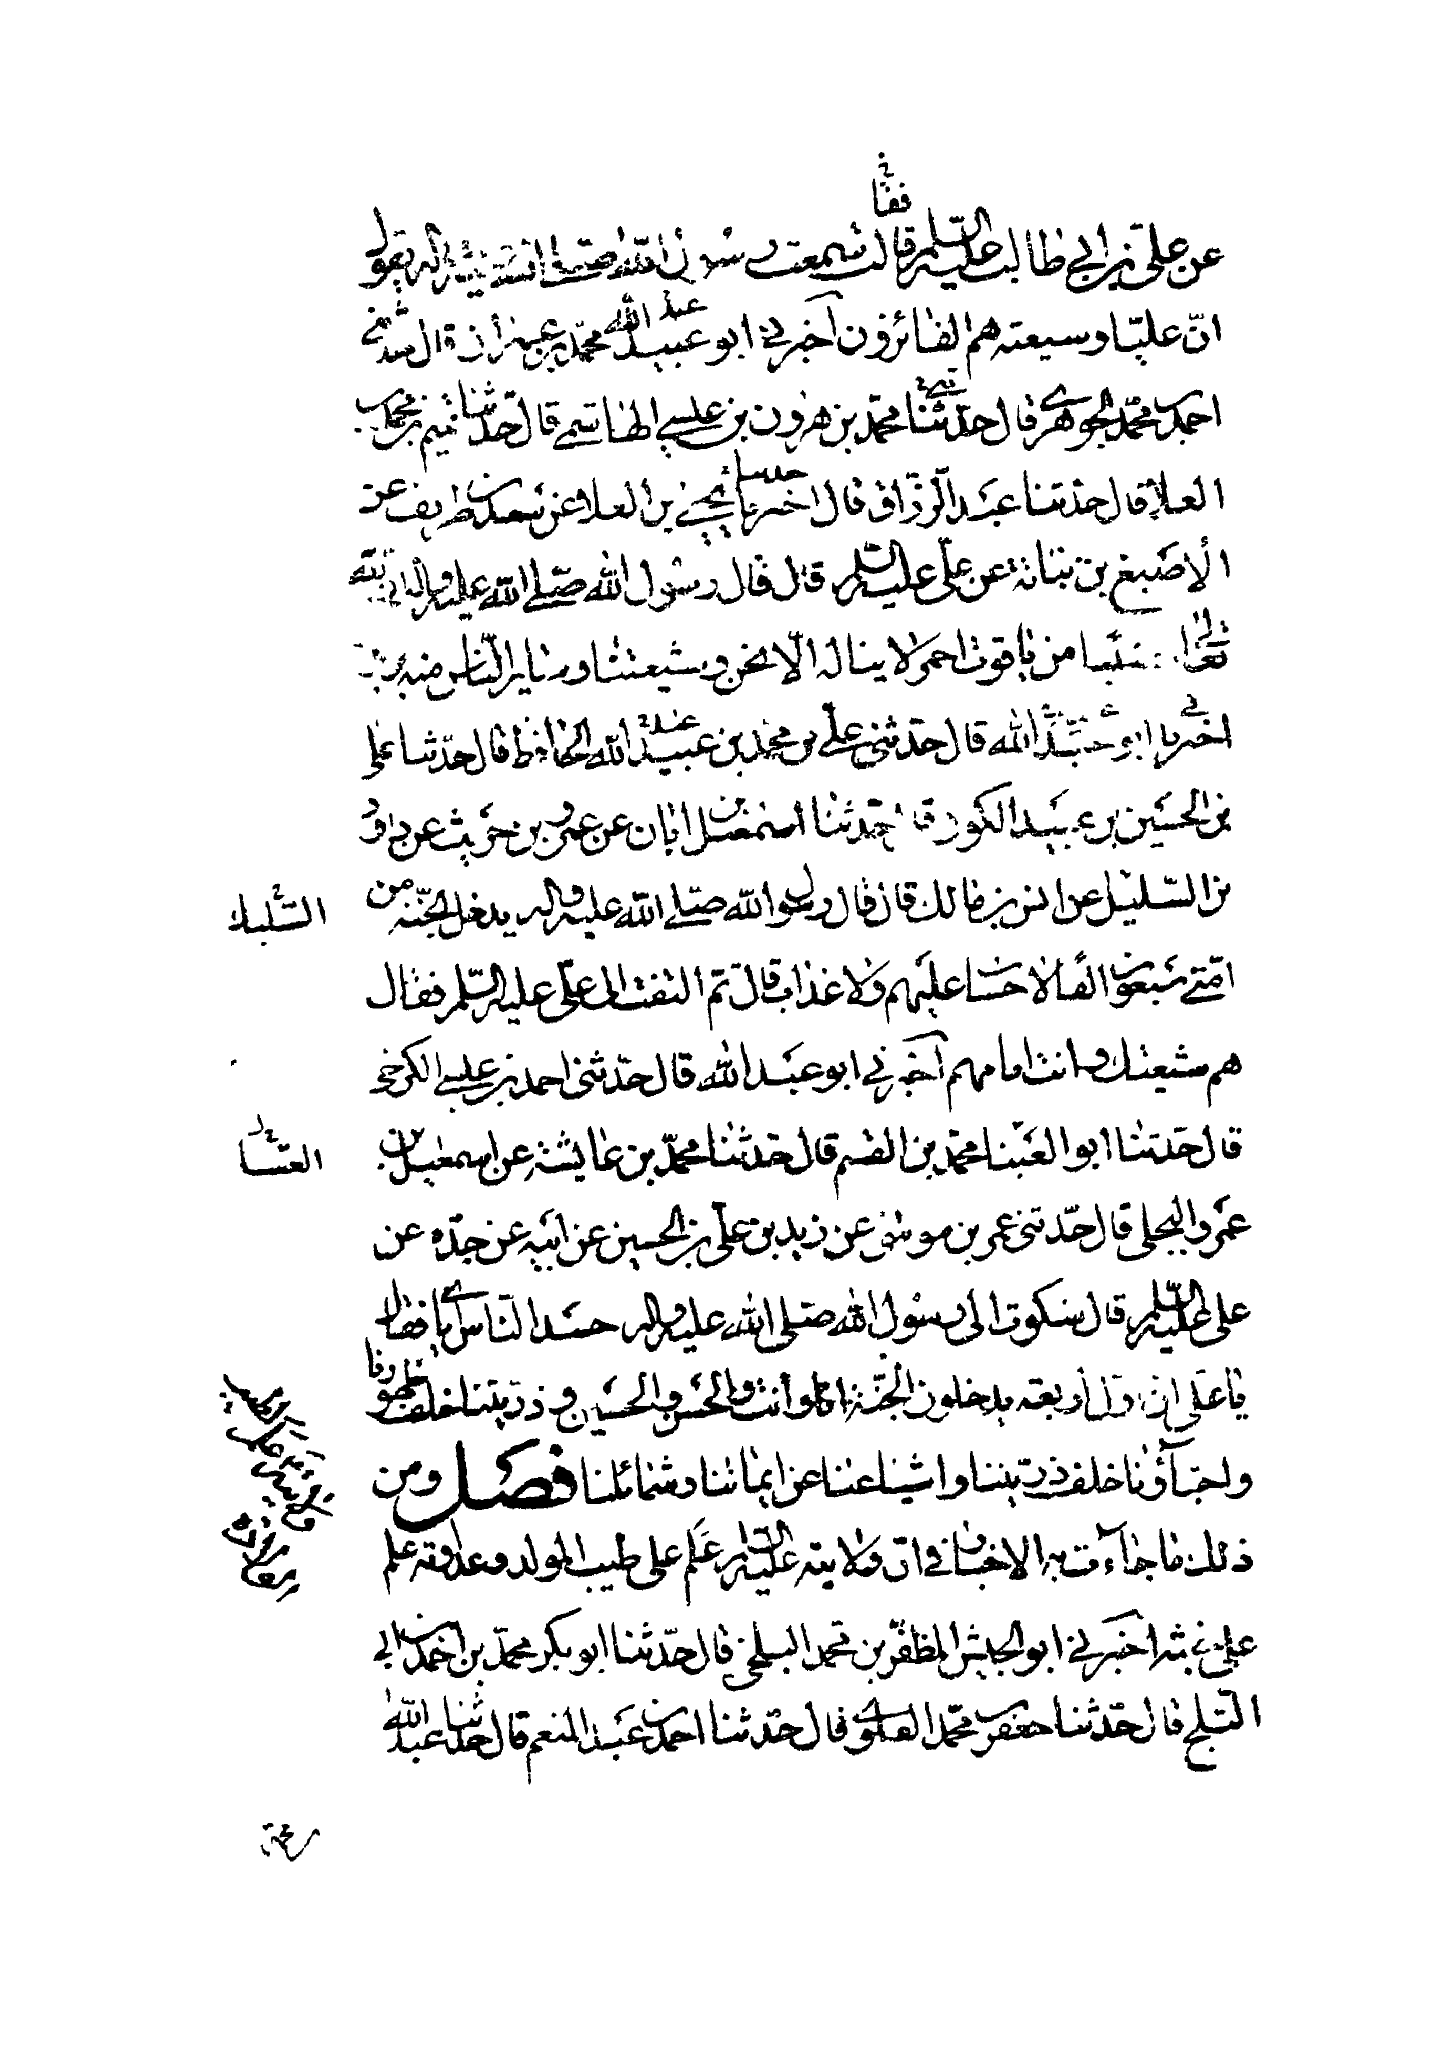 فقا
عن علي بن ابي طالب عليه السلم قالت سمعت رسول الله صلى الله عليه واله يقول
انّ عليّا وشيعته هم الفائزون اخبرني ابو عبيد الله محمد بن عمران قال حدثني
عبد الله
احمد بن محمد الجوهري قال حدّثنا محمّد بن هرون بن عيسى الهاشمي قال حدّثنا تميم بن محمد بن
العلا قال حدّثنا عبد الرزّاق قال اخبرنا يحيى بن العلا عن سعد بن طريف عن
الاصبغ بن نباتة عن علّي عليه السلم قال قال رسول الله صلّى الله عليه واله ان لله
تعالى من ياقوت احمر لا يناله الّا نحن وشيعتنا وساير النّاس منه
اخبرنا ابو عبد الله قال حدّثنى علي بن محمد بن عبيد الله الحافظ قال حدّثنا علي
بن الحسين بن عبيد الكوفي قال حدّثنا اسمعيل بن ابان عن عمرو بن حريث عن داود
بن السّليل عن انس بن مالك قال قال رسول الله صلّى الله عليه واله يدخل الجنّة من
السّليك
امّتي سبعون الفا لا حساب عليهم ولا عذاب قال ثم التفت الى علّي عليه السّلم فقال
هم شيعتك وانت امامهم اخبرني ابو عبد الله قال حدّثنى احمد بن عيسى الكرخي
قال حدّثنا ابو العينا محمّد بن القسم قال حدّثنا محمّد بن عايشة عن اسمعيل بن
العتسا
عمرو البجلي قال حدّثنى عمر بن موسى عن زيد بن علّي بن الحسين عن ابيه عن جدّه عن
على عليه السّلم قال شكوت الى رسول الله صلى الله عليه واله حسد النّاس اياي فقال
يا على ان اول اربعة يدخلون الجنّة انا وانت والحسن والحسين وذرّيتنا خلف ظهورنا
واحبّاؤنا خلف ذرّيتنا واشياعنا عن ايماننا وشمائلنا فصل ومن
ذلك ما جاءت به الاخبار في انّ ولايته عليه السّلم علم على طيب المولد وعداوته علم
على خبثه اخبرني ابو الجيش المظفّر بن محمد البلخي قال حدّثنا ابو بكر محمّد بن احمد بن ابي
الثلج قال حدّثنا جعفر بن محمّد العلوي قال حدّثنا احمد بن عبد المنعم قال حدّثنا عبد الله